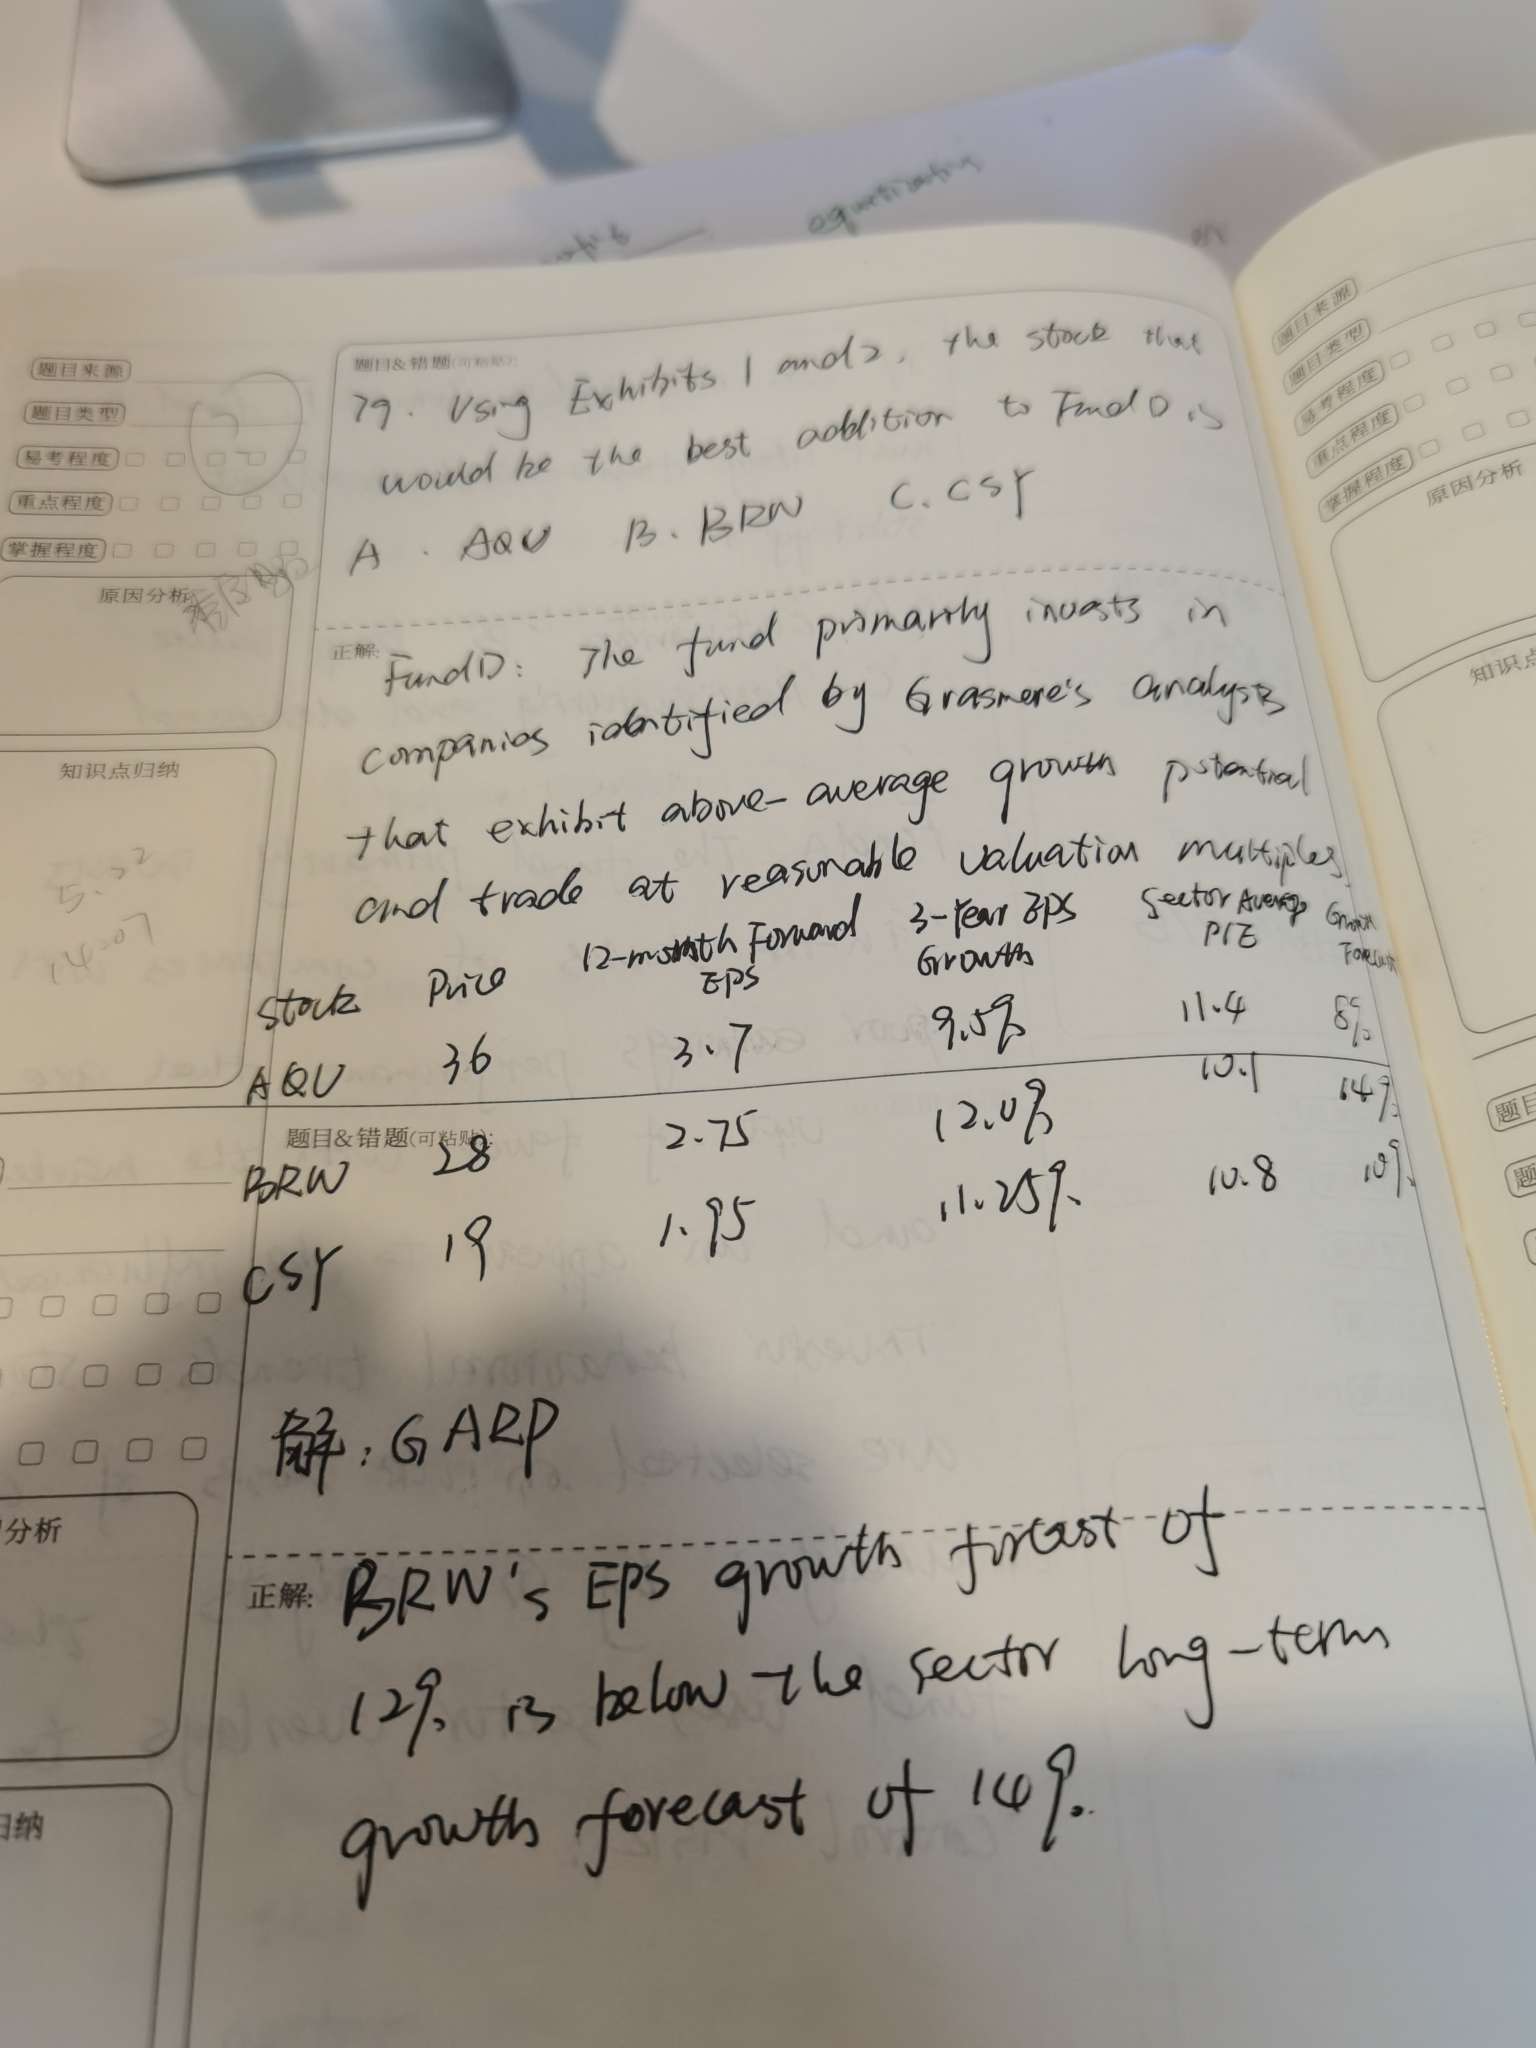 equitization
题目来源
题目类型
易考程度
重点程度
掌握程度
原因分析
知识点归纳
5.22
14:07
题目&错题(可粘贴):
79. Using Exhibits 1 and 2, the stock that
would be the best addition to Fund D is
A. AQU B. BRW C. CSY
正解:
Fund D: The fund primarily invests in
companies identified by Grasmere's analysts
that exhibit above-average growth potential
and trade at reasonable valuation multiples.
Stock Price 12-month Forward EPS 3-Year EPS Growth Sector Average P/E Growth Forecast
AQU 36 3.7 9.5% 11.4 8%
题目&错题(可粘贴):
BRW 28 2.75 12.0% 10.1 14%
CSY 19 1.95 11.25% 10.8 10%
解: GARP
正解: BRW's EPS growth forcast of
12% is below the sector long-term
growth forecast of 14%.
分析
归纳
题目来源
题目类型
易考程度
重点程度
掌握程度
原因分析
知识点
题目
题